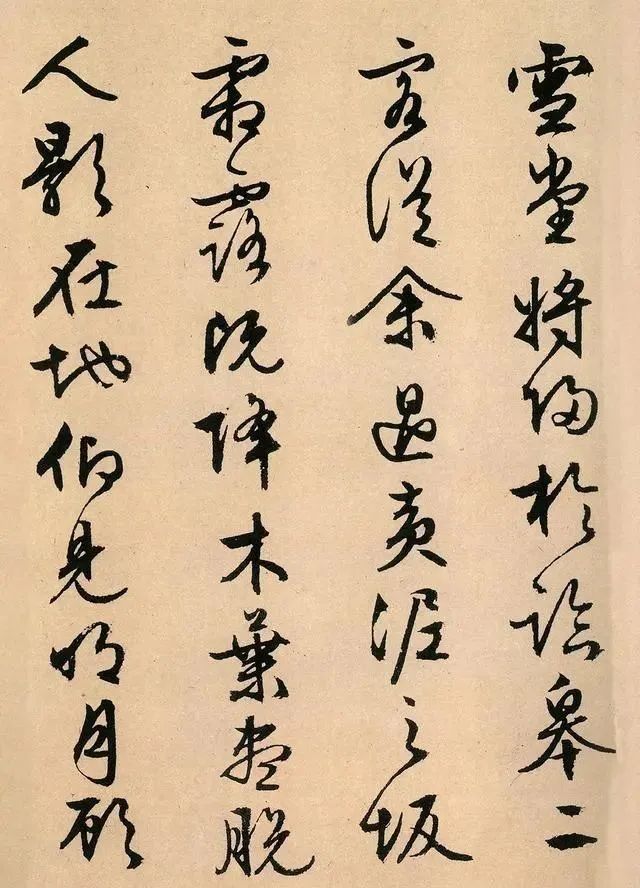 雪堂將歸於臨皋二
客從余過黃泥之坂
霜露既降木葉盡脫
人影在地仰見明月顧